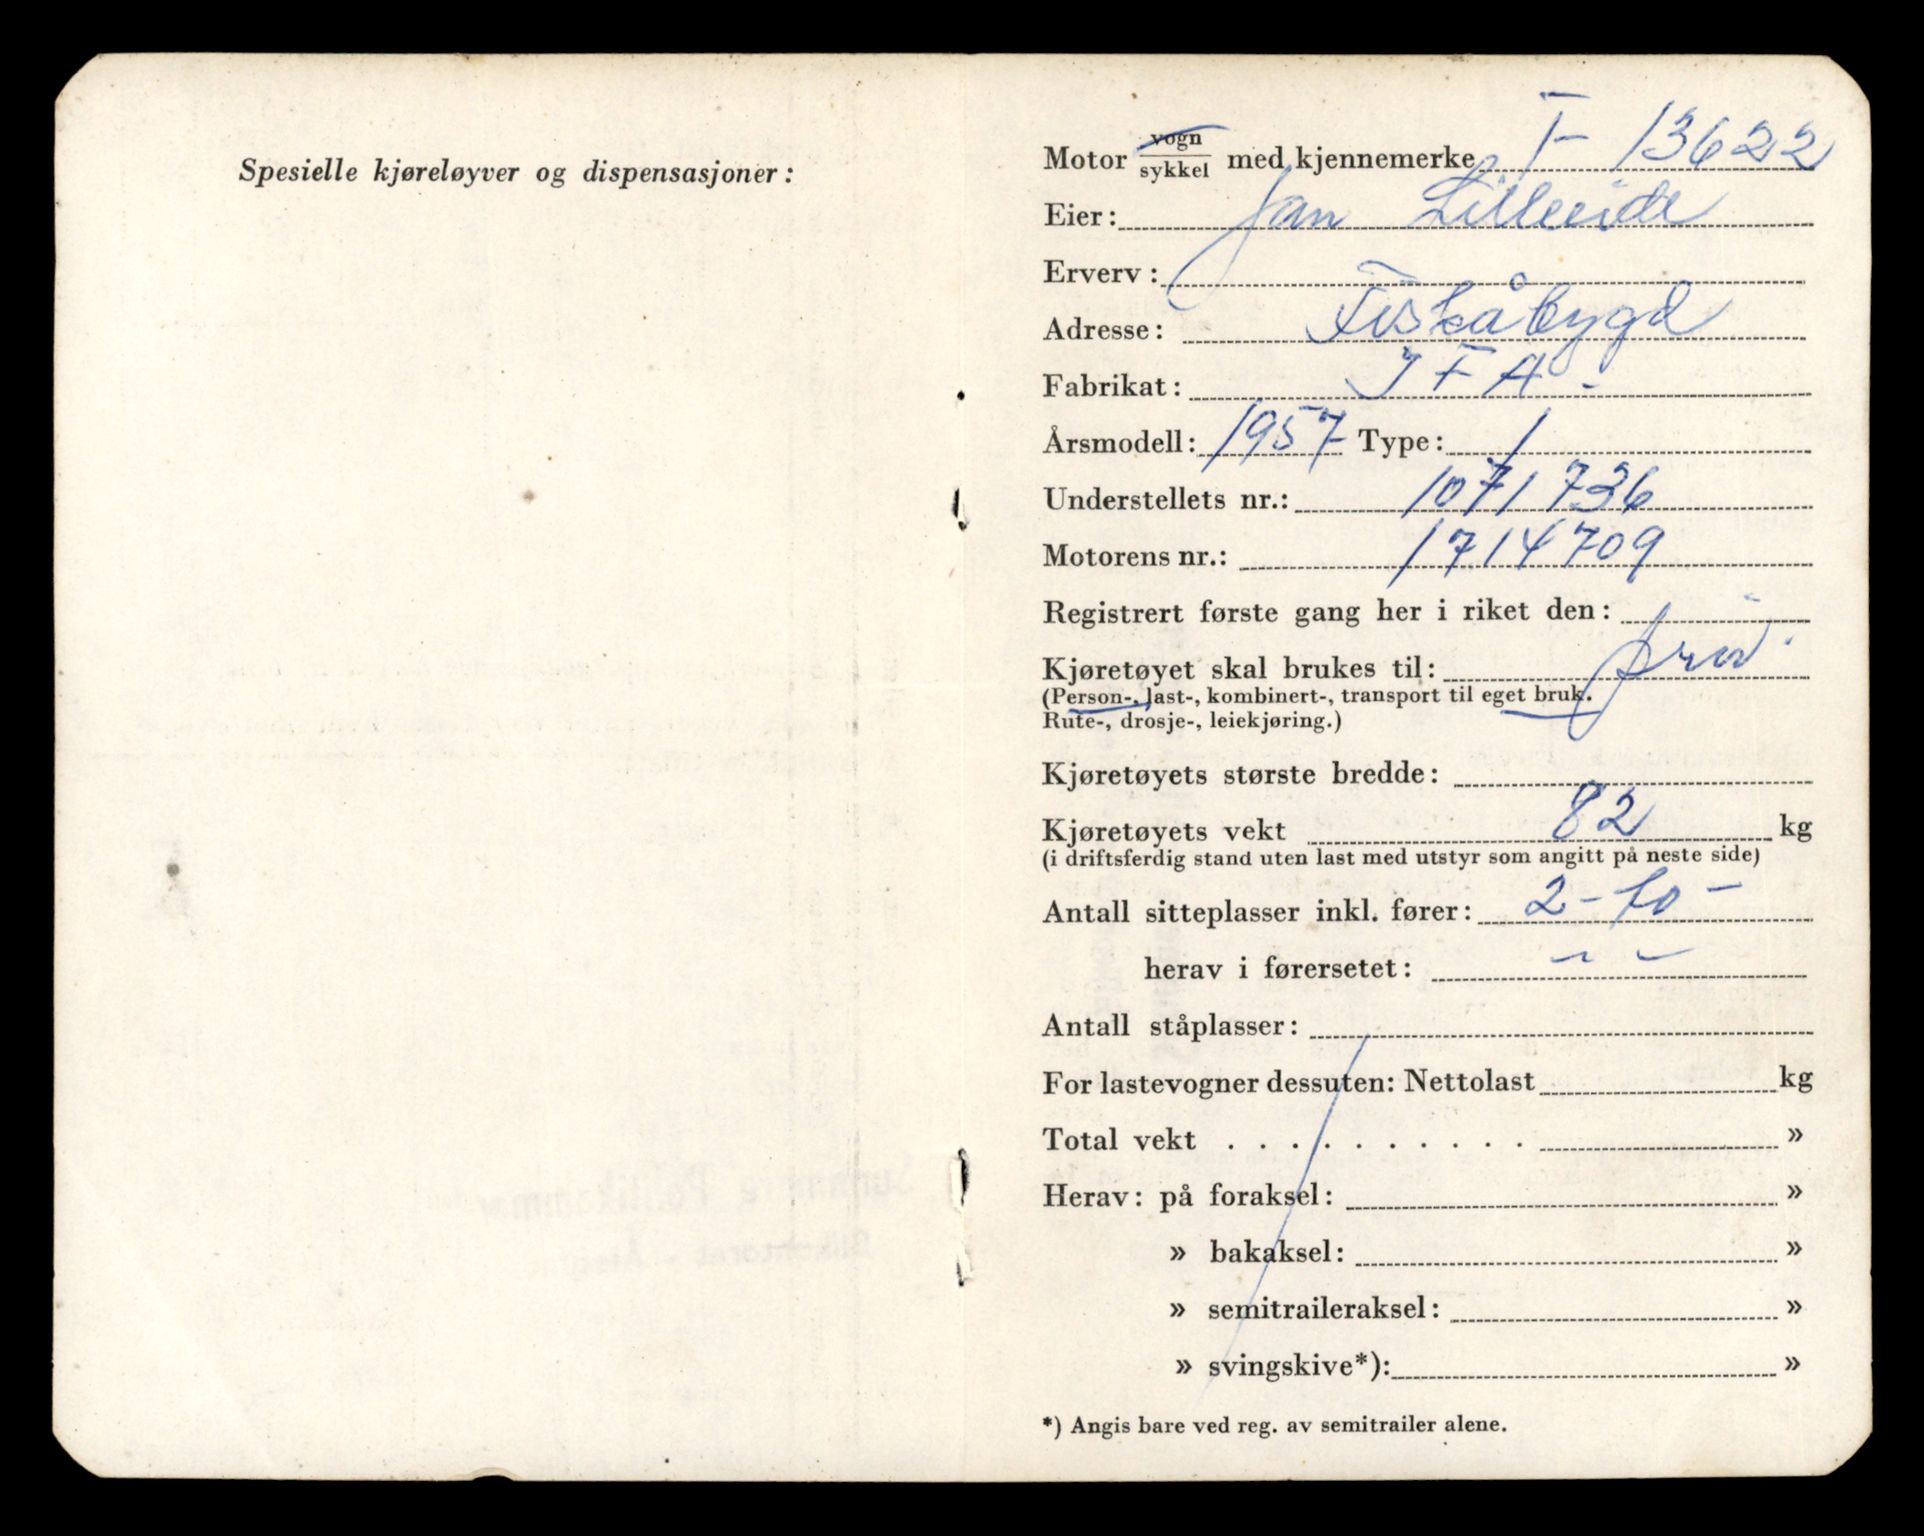 Spesielle kjøreløyver og dispensasjoner:
Motor vogn/sykkel med kjennemerke T- 13622
Eier: Jan Lilleeide
Erverv:
Adresse: Fiskåbygd
Fabrikat: IFA -
Årsmodell: 1957 Type: 1
Understellets nr.: 1071736
Motorens nr.: 1714709
Registrert første gang her i riket den:
Kjøretøyet skal brukes til: priv.
(Person-, last-, kombinert-, transport til eget bruk.
Rute-, drosje-, leiekjøring.)
Kjøretøyets største bredde:
Kjøretøyets vekt 82 kg
(i driftsferdig stand uten last med utstyr som angitt på neste side)
Antall sitteplasser inkl. fører: 2 - to -
herav i førersetet: - -
Antall ståplasser:
For lastevogner dessuten: Nettolast kg
Total vekt . . . . . . . . . . . »
Herav: på foraksel: »
» bakaksel: »
» semitraileraksel: »
» svingskive*): »
*) Angis bare ved reg. av semitrailer alene.